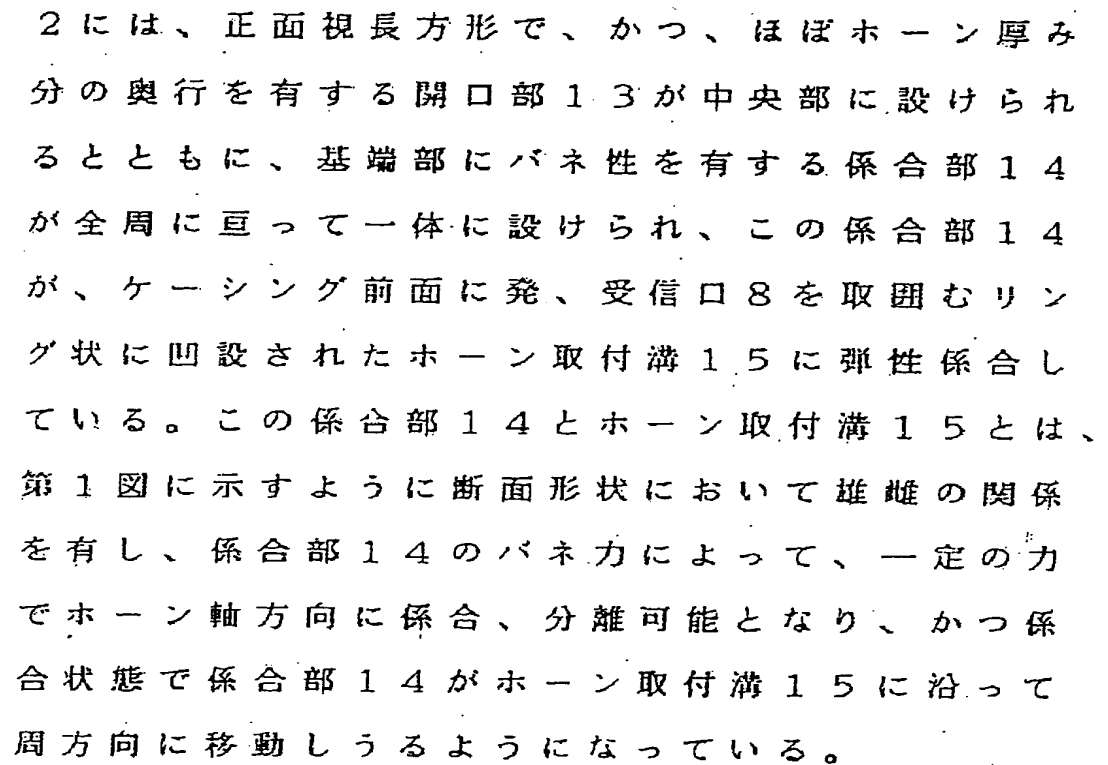 2には、正面視長方形で、かつ、ほぼホーン厚み
分の奥行を有する開口部13が中央部に設けられ
るとともに、基端部にバネ性を有する係合部14
が全周に亘って一体に設けられ、この係合部14
が、ケーシング前面に発、受信口8を取囲むリン
グ状に凹設されたホーン取付溝15に弾性係合し
ている。この係合部14とホーン取付溝15とは、
第1図に示すように断面形状において雄雌の関係
を有し、係合部14のバネ力によって、一定の力
でホーン軸方向に係合、分離可能となり、かつ係
合状態で係合部14がホーン取付溝15に沿って
周方向に移動しうるようになっている。